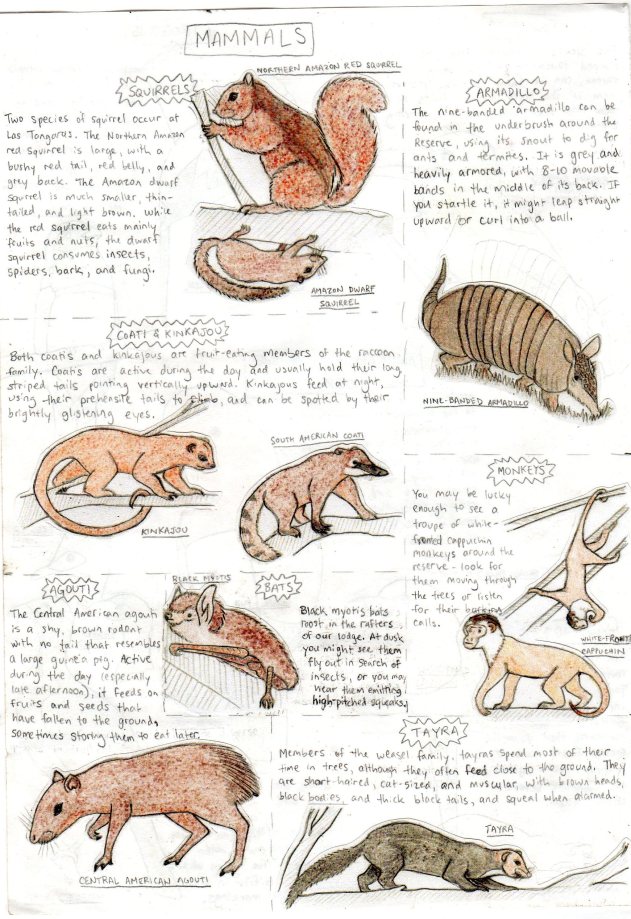 MAMMALS
NORTHERN AMAZON RED SQUIRREL
SQUIRRELS
Two species of squirrel occur at
Los Tongorus. The Northern Amazon
red squirrel is large, with a
bushy red tail, red belly, and
grey back. The Amazon dwarf
squirrel is much smaller, thin-
tailed, and light brown. While
the red squirrel eats mainly
fruits and nuts, the dwarf
squirrel consumes insects,
spiders, bark, and fungi.
AMAZON DWARF
SQUIRREL
ARMADILLO
The nine-banded armadillo can be
found in the underbrush around the
Reserve, using its snout to dig for
ants and termites. It is grey and
heavily armored, with 8-10 movable
bands in the middle of its back. If
you startle it, it might leap straight
upward or curl into a ball.
NINE-BANDED ARMADILLO
COATI & KINKAJOU
Both coatis and kinkajous are fruit-eating members of the raccoon
family. Coatis are active during the day and usually hold their long
striped tails pointing vertically upward. Kinkajous feed at night,
using their prehensile tails to climb, and can be spotted by their
brightly glistening eyes.
SOUTH AMERICAN COATI
KINKAJOU
MONKEYS
You may be lucky
enough to see a
troupe of white-
fronted cappuchin
monkeys around the
reserve - look for
them moving through
the trees or listen
for their
calls.
WHITE-FRONTED
CAPPUCHIN
AGOUTI
The Central American agouti
is a shy, brown rodent
with no tail that resembles
a large guinea pig. Active
during the day (especially
late afternoon), it feeds on
fruits and seeds that
have fallen to the ground,
sometimes storing them to eat later.
CENTRAL AMERICAN AGOUTI
BLACK MYOTIS
BATS
Black myotis bats
roost in the rafters
of our lodge. At dusk
you might see them
fly out in search of
insects, or you may
hear them emitting
high-pitched squeaks.
TAYRA
Members of the weasel family, tayras spend most of their
time in trees, although they often feed close to the ground. They
are short-haired, cat-sized, and muscular, with brown heads,
black bodies, and thick black tails, and squeal when alarmed.
TAYRA